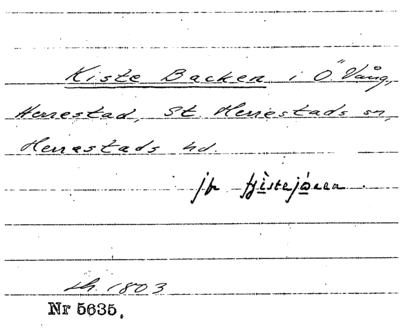 Kiste Backen i Ö. Vång,
Herrestad, St. Herrestads sn,
Herrestads hd.
jfr
Lh. 1803
Nr 5635.